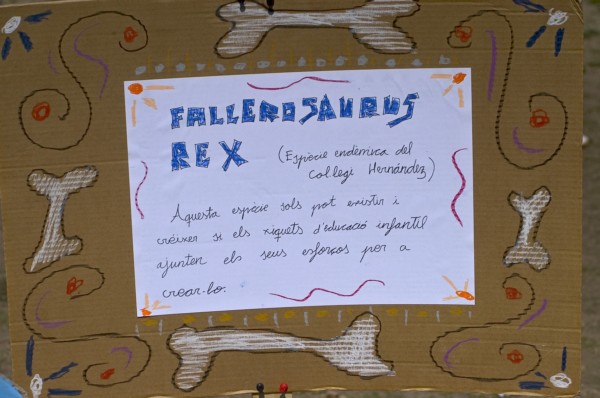 FALLEROSAURUS
REX (Espècie endèmica del
Col·legi Hernández)
Aquesta espècie sols pot existir i
créixer si els xiquets d'educació infantil
ajunten els seus esforços per a
crear-lo.